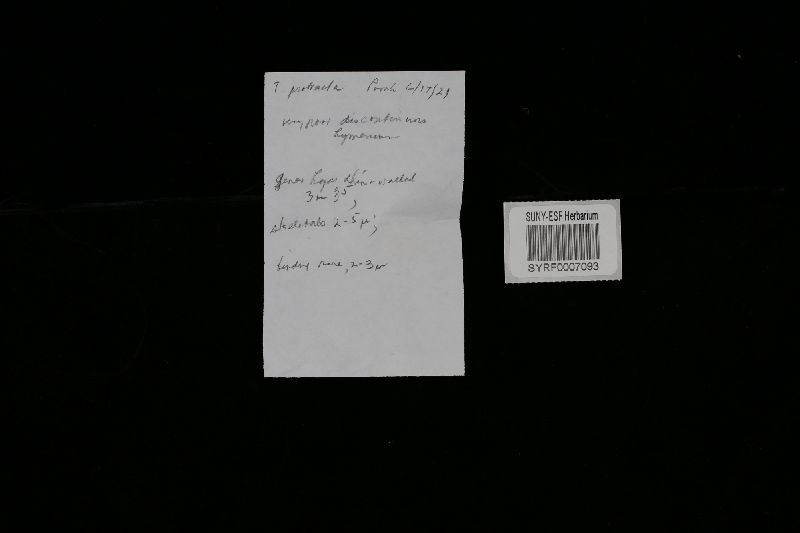 T protracta
very poor discontinuous
hymenium
gener hyphae thin-walled
skeletals 2-5 µ;
binding rare, 2-3µ
SUNY-ESF Herbarium
SYRF0007093